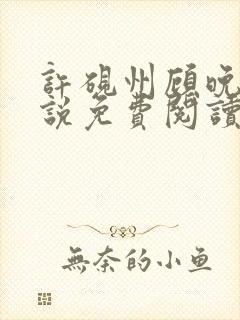 許硯州顾晚
說免費閱讀
無奈的小鱼